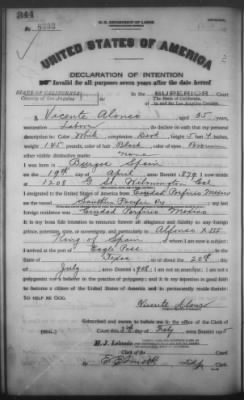 244
U.S. DEPARTMENT OF LABOR
UNITED STATES OF AMERICA
DECLARATION OF INTENTION
Invalid for all purposes seven years after the date hereof
STATE OF CALIFORNIA
County of Los Angeles
In the SUPERIOR Court
The State of California,
in and for Los Angeles County.
I, Vicente Alonso, aged 35 years,
occupation Labor, do declare on oath that my personal
description is: Color White, complexion Dark, height 5 feet inches,
weight 145 pounds, color of hair Black, color of eyes Brown
other visible distinctive marks
None
I was born in Spain
on the 19th day of April, anno Domini 1879; I now reside
at 1208 G St. Wilmington Cal
I emigrated to the United States of America from Ciudad Porfirio Mexico
on the vessel Southern Pacific Ry; my last
foreign residence was Ciudad Porfirio Mexico
It is my bona fide intention to renounce forever all allegiance and fidelity to any foreign
prince, potentate, state, or sovereignty, and particularly to Alfonso XIII
King of Spain, of whom I am now a subject;
I arrived at the port of Eagle Pass
of Texas on or about the 20th day
of July, anno Domini 1908; I am not an anarchist; I am not a
polygamist nor a believer in the practice of polygamy; and it is my intention in good faith
to become a citizen of the United States of America and to permanently reside therein:
SO HELP ME GOD.
Vicente Alonso
Subscribed and sworn to before me in the office of the Clerk of
Court this 3rd day of Feby
H. J. Lelande
Clerk of the Court.